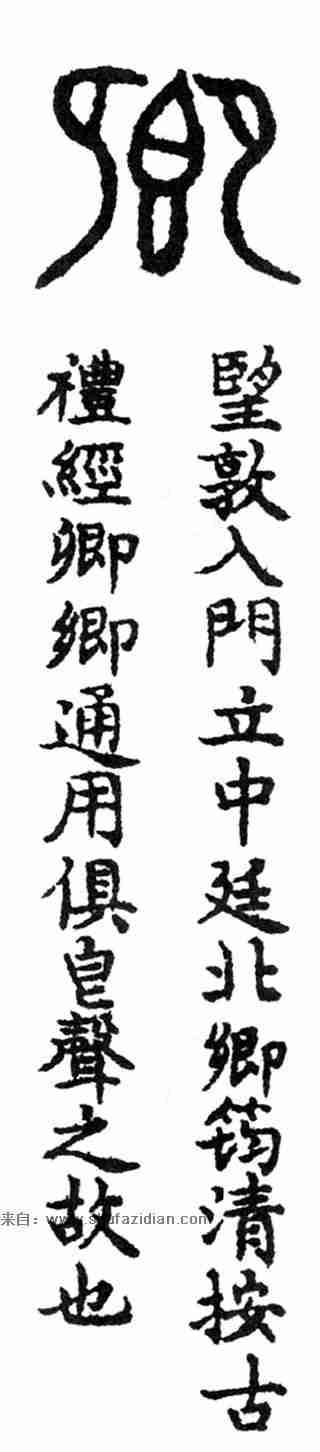 卿
朢敦入門立中廷北卿筠清按古
禮經卿鄉通用俱皀聲之故也
来自：www.shufazidian.com